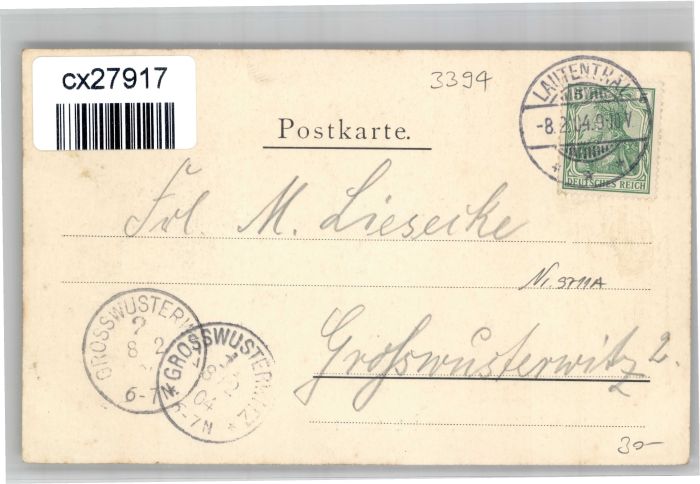 cx27917
3394
Postkarte.
LAUTENTHAL
-8.2.04.9-10V
DEUTSCHES REICH
Frl. M. Liesecke
Grosswusterwitz 2.
GROSSWUSTERW
8 2
6-7N
GROSSWUSTERWITZ
8 2
04
6-7N
30-